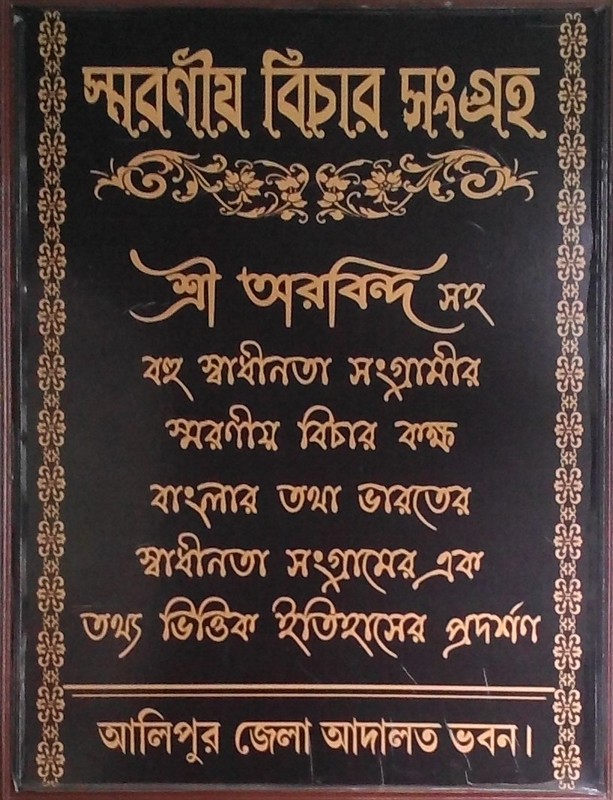 স্মরণীয় বিচার সংগ্রহ
শ্রী অরবিন্দ সহ
বহু স্বাধীনতা সংগ্রামীর
স্মরণীয় বিচার কক্ষ
বাংলার তথা ভারতের
স্বাধীনতা সংগ্রামের এক
তথ্য ভিত্তিক ইতিহাসের প্রদর্শণ
আলিপুর জেলা আদালত ভবন।